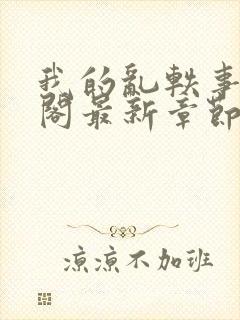 我的亂軼事
閣最新章節
涼涼不加班